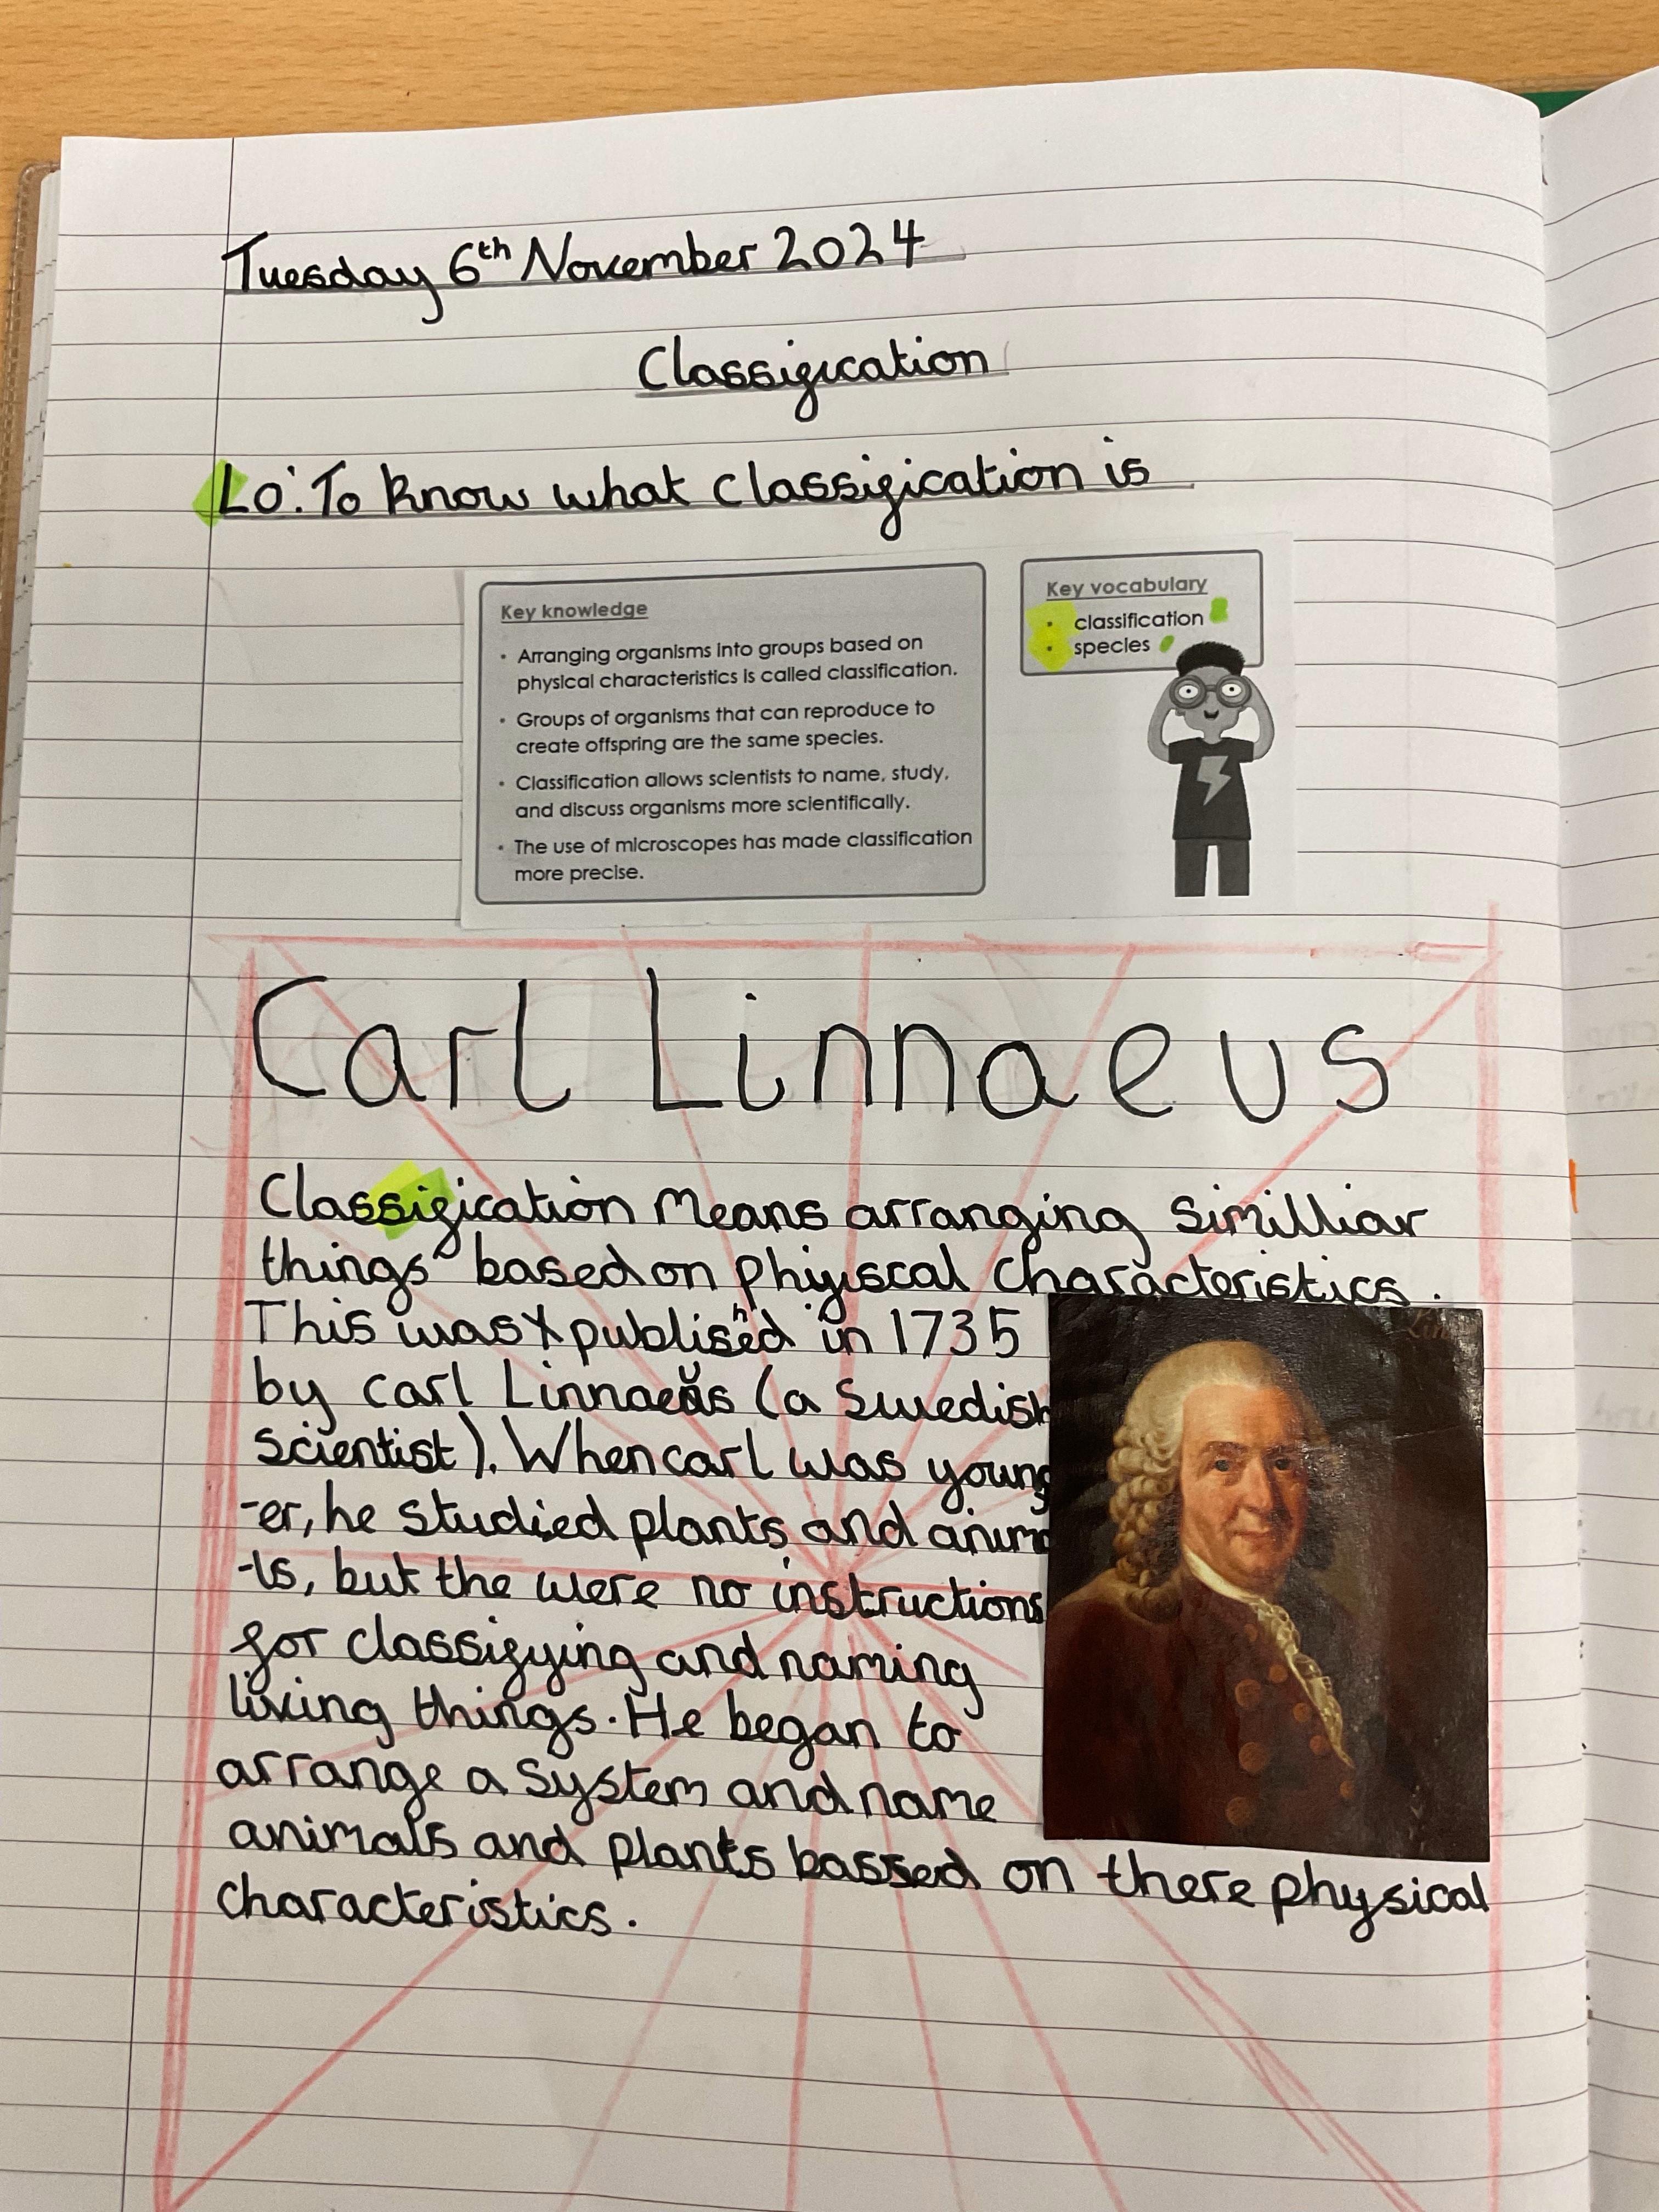 Tuesday 6th November 2024
Classification
LO: To know what classification is
Key knowledge
• Arranging organisms into groups based on
physical characteristics is called classification.
• Groups of organisms that can reproduce to
create offspring are the same species.
• Classification allows scientists to name, study,
and discuss organisms more scientifically.
• The use of microscopes has made classification
more precise.
Key vocabulary
• classification
• species
Carl Linnaeus
Classification Means arranging similliar
things based on phiyiscal characteristics.
This was published in 1735
by carl Linnaeus (a Swedish
scientist). When carl was young
-er, he studied plants and anima
-ls, but the were no instructions
for classifying and naming
living things. He began to
arrange a system and name
animals and plants bassed on there physical
characteristics.